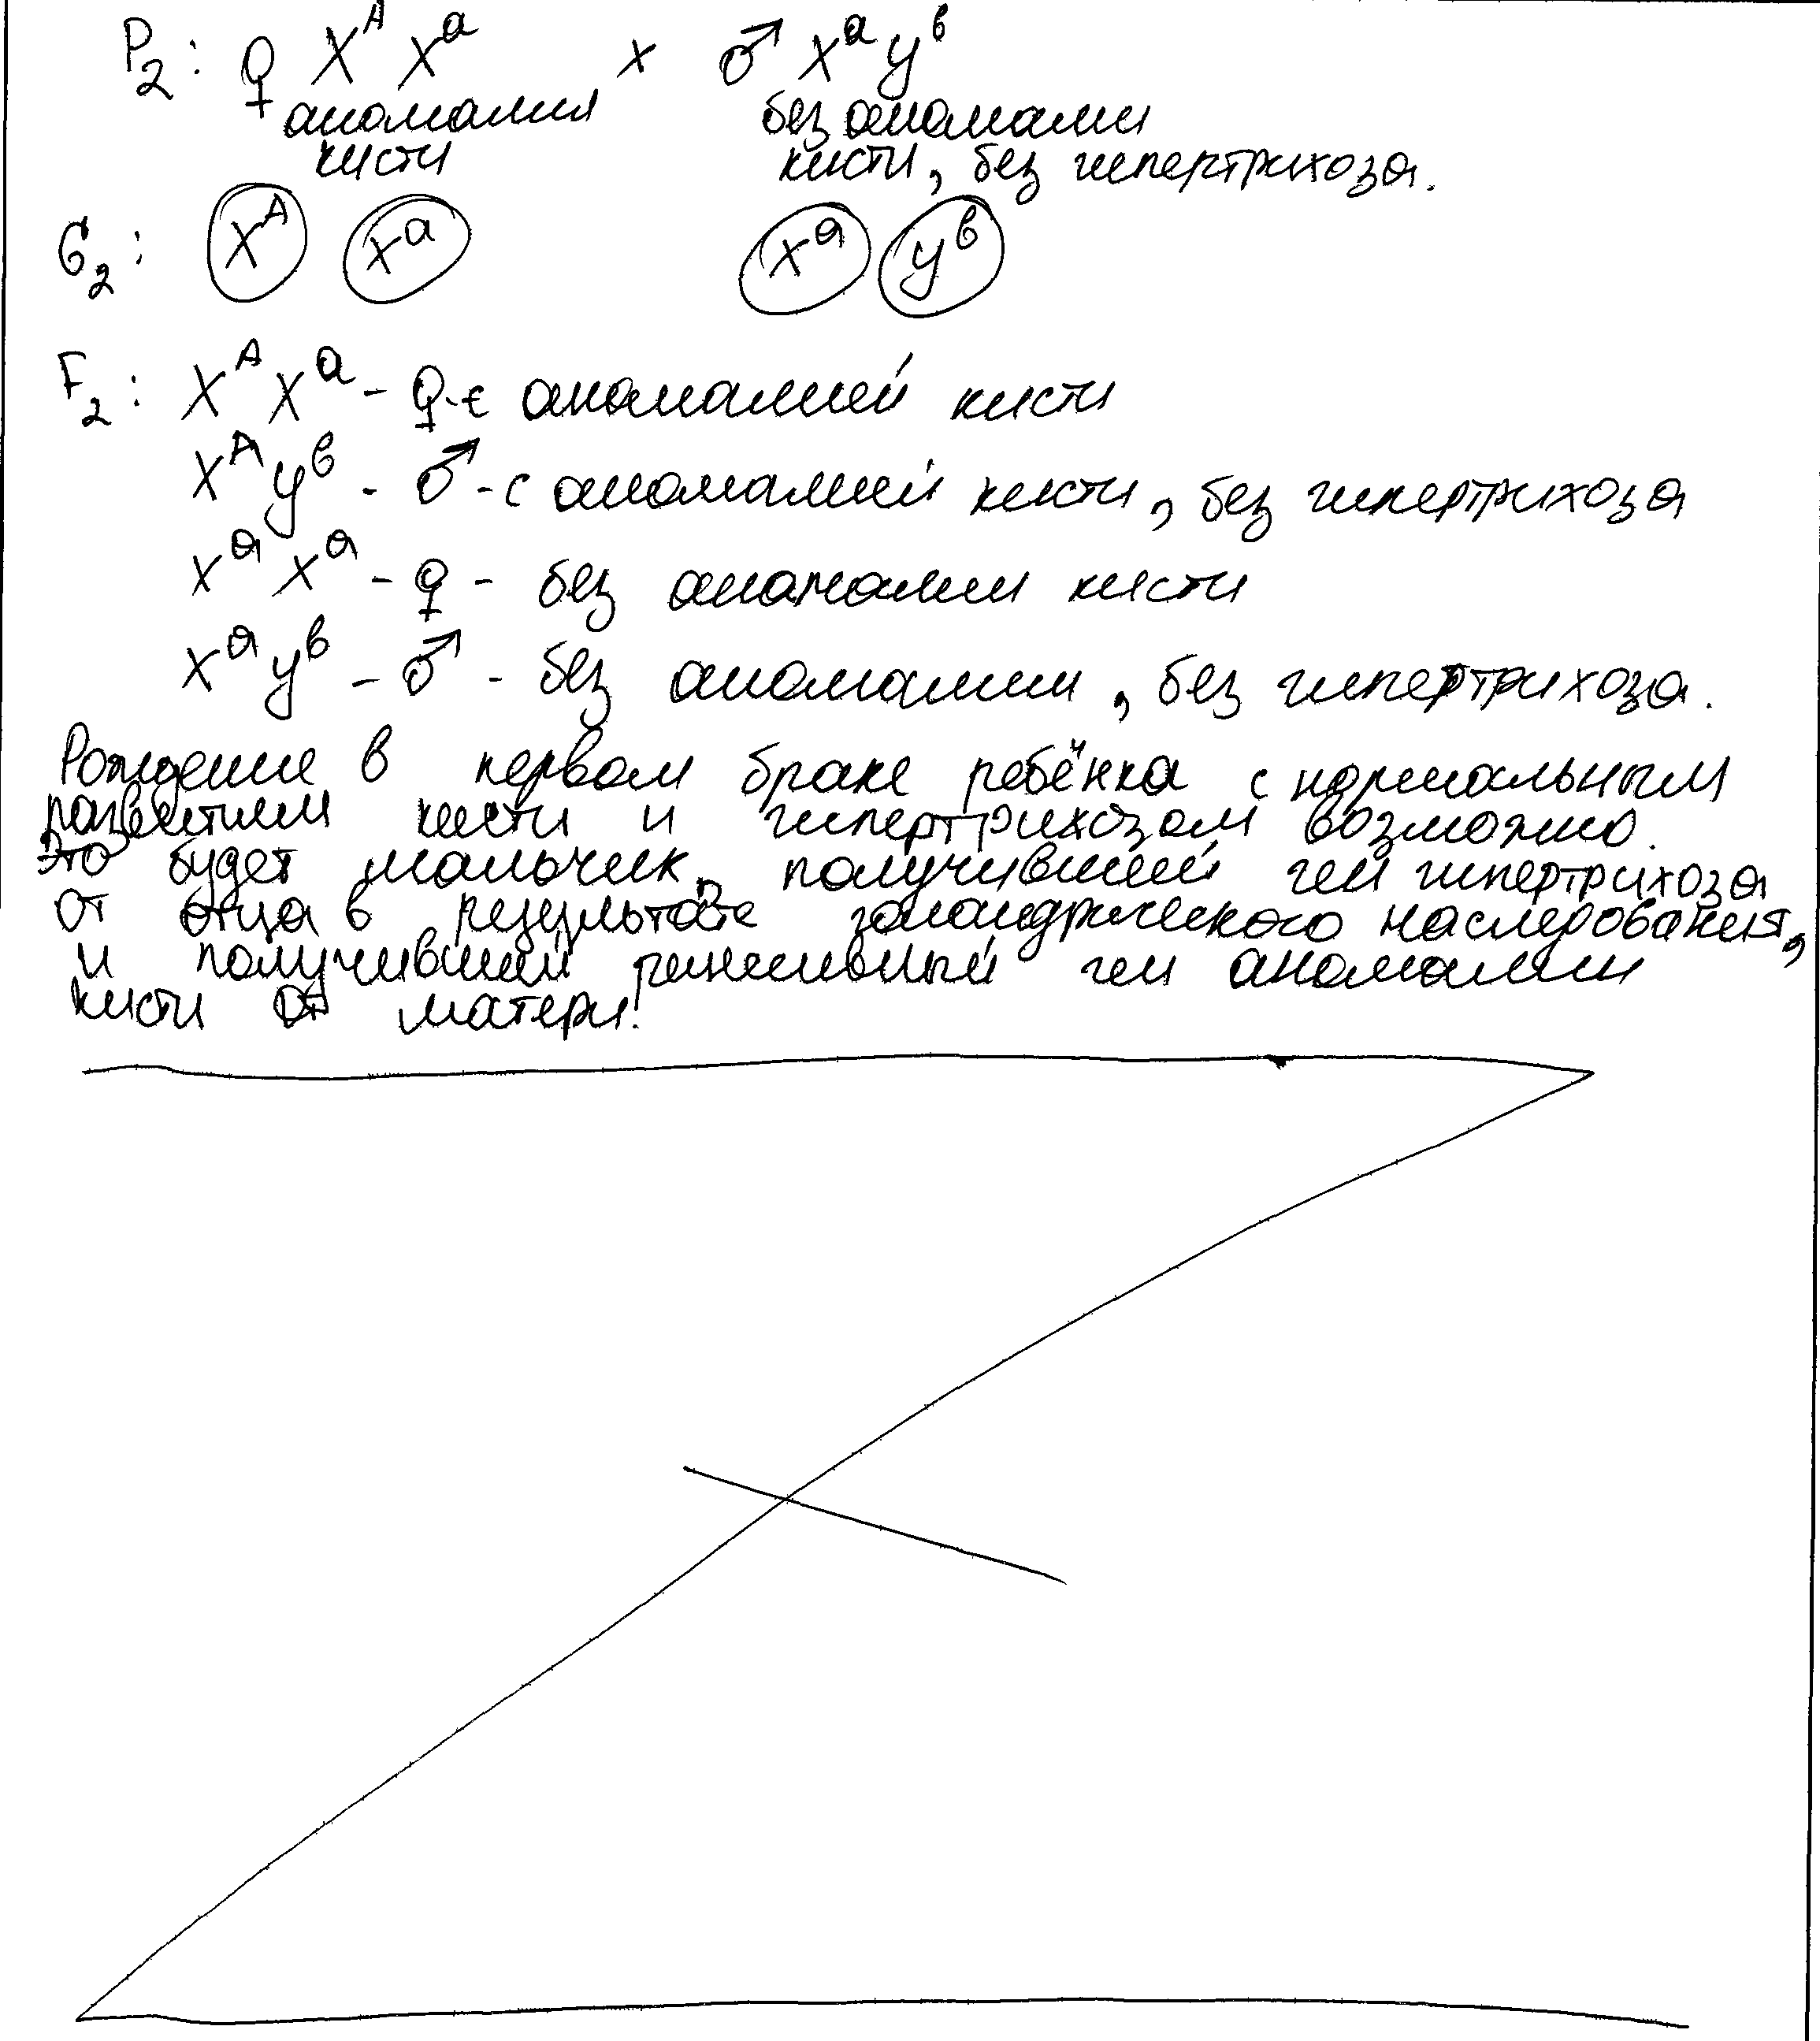 P₂: ♀ Xᴬ Xᵃ x ♂ Xᵃ Yᵇ
аномалия без аномалии
кисти кисти, без гипертрихоза.
G₂: Xᴬ Xᵃ Xᵃ Yᵇ
F₂: Xᴬ Xᵃ - ♀ - с аномалией кисти
Xᴬ Yᵇ - ♂ - с аномалией кисти, без гипертрихоза
Xᵃ Xᵃ - ♀ - без аномалии кисти
Xᵃ Yᵇ - ♂ - без аномалии, без гипертрихоза.
Рождение в первом браке ребёнка с нормальным
развитием кисти и гипертрихозом возможно.
Это будет мальчик, получивший ген гипертрихоза
от отца в результате голандрического наследования,
и получивший рецессивный ген аномалии
кисти от матери.